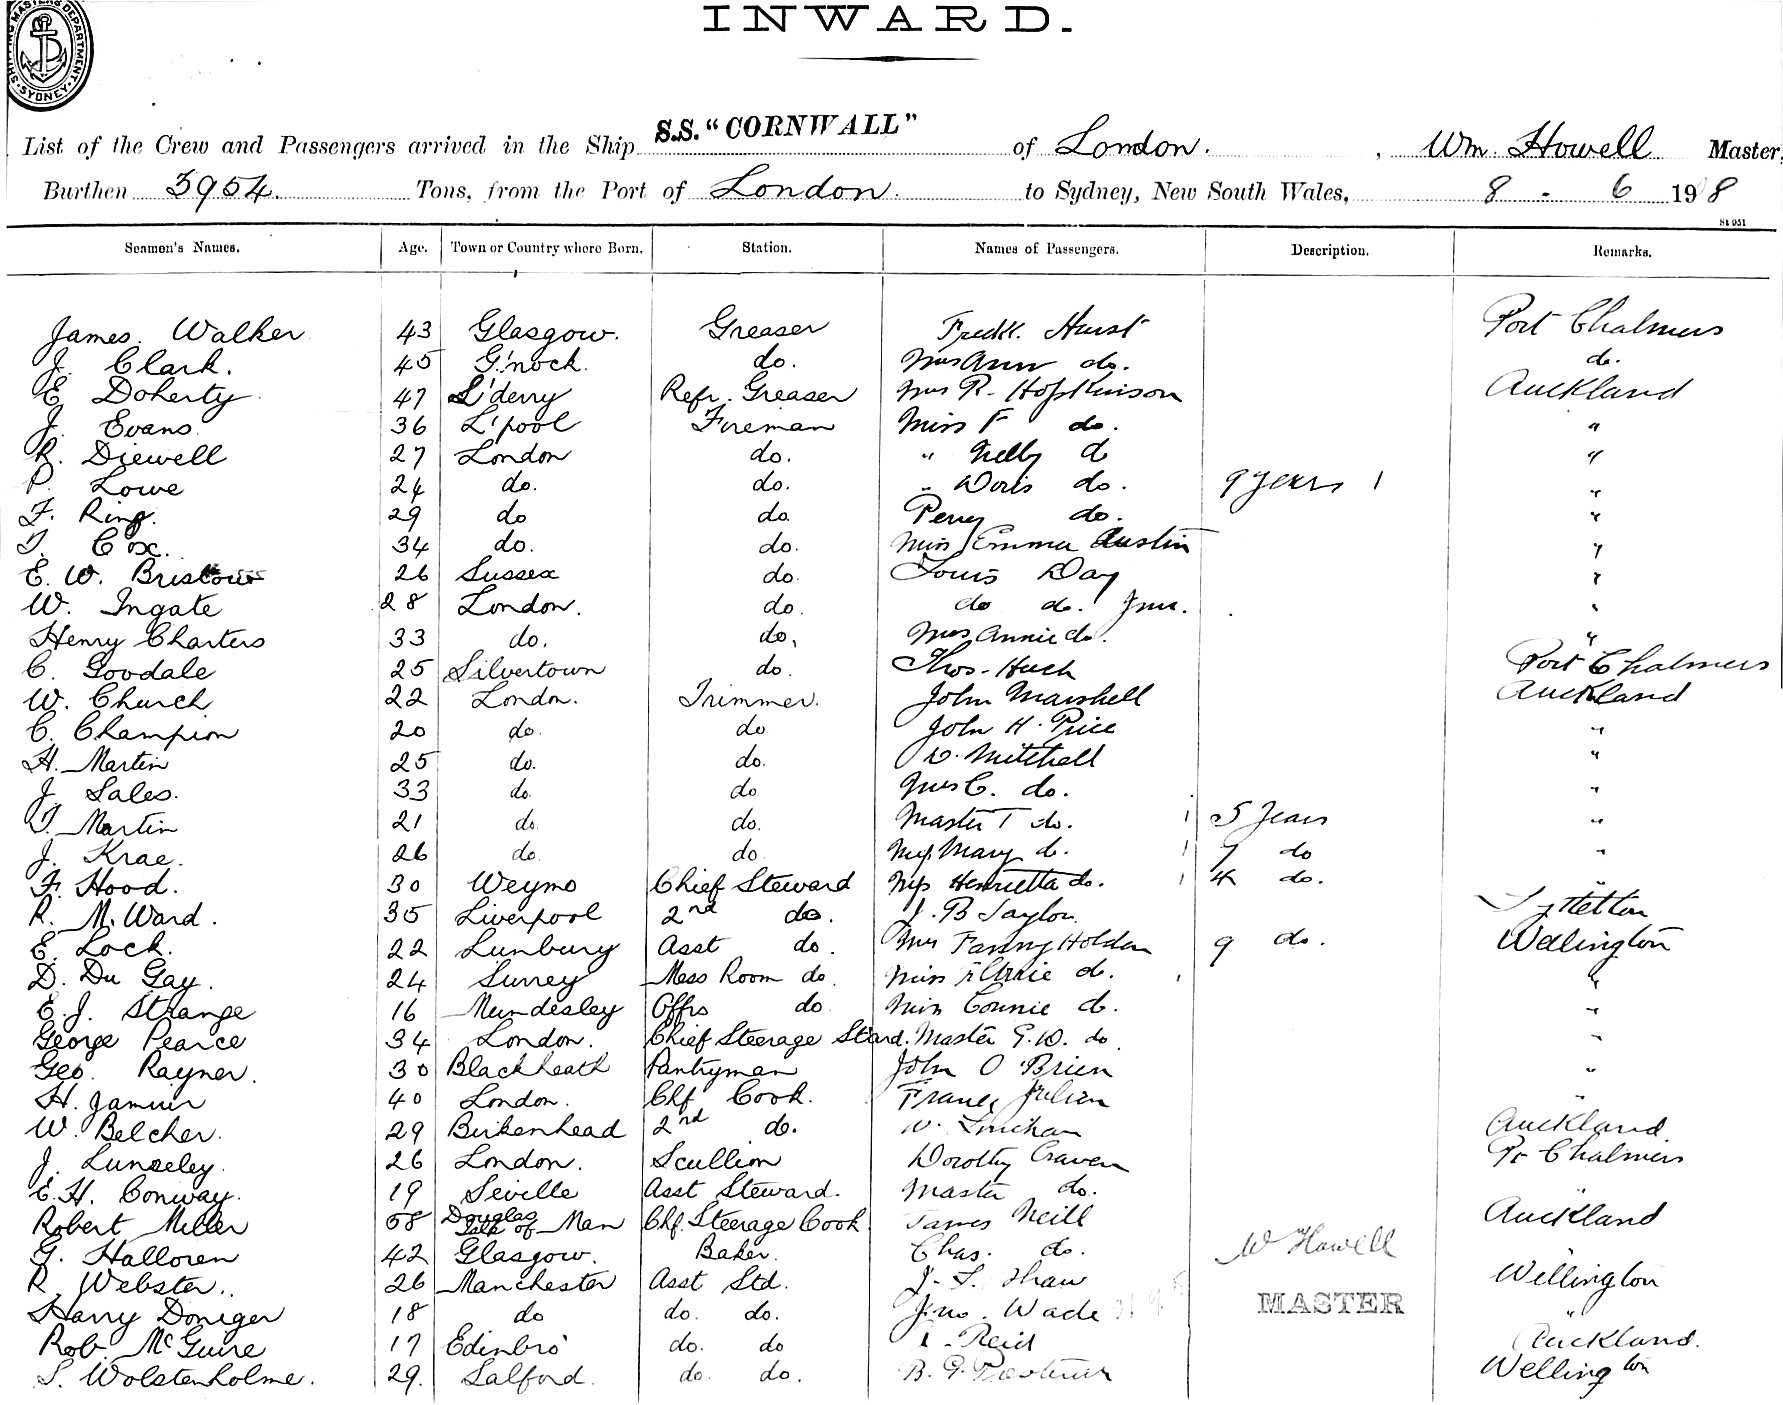 SHIPPING MASTERS DEPARTMENT. SYDNEY.
INWARD.
List of the Crew and Passengers arrived in the Ship S.S. "CORNWALL" of London. , Wm. Howell Master,
Burthen 5954. Tons, from the Port of London. to Sydney, New South Wales, 8 - 6 1908
St 951
Seamen's Names. Age. Town or Country where Born. Station. Names of Passengers. Description. Remarks.
James. Walker 43 Glasgow. Greaser Fredk. Hurst Port Chalmers
J. Clark. 45 G'nock. do. Mrs Ann do. do.
E Doherty 47 L'derry Refr. Greaser Mrs R. Hopkinson Auckland
J. Evans 36 L'pool Fireman Miss F do. "
R. Diewell 27 London do. " Nelly do "
P. Lowe 24 do. do. " Doris do. 9 years 1 "
F. Ring. 29 do do. Percy do. "
T. Cox. 34 do. do. Miss Emma Austin "
E. W. Bristow 26 Sussex do. Louis Day "
W. Ingate 28 London. do. do do. Jnr. "
Henry Charters 33 do. do. Mrs Annie do. "
C. Goodale 25 Silvertown do. Thos. Port Chalmers
W. Church 22 London. Trimmer. John Marshell Auckland
C. Champion 20 do. do John H. Price "
H. Martin 25 do. do. D. Mitchell "
J. Sales. 33 do. do Mrs C. do. "
T. Martin 21 do. do. Master T do. 1 5 Years "
J. Krae. 26 do. do Miss Mary do. 1 7 do "
F. Hood. 30 Weymo Chief Steward Miss Henrietta do. 1 4 do. "
R. M. Ward. 35 Liverpool 2nd do. J. B Taylor. Lyttelton
E. Lock. 22 Lunbury Asst do. Mrs Fanny Holden 9 do. Wellington
D. Du Gay. 24 Surrey Mess Room do. Miss do. "
E. J. Strange 16 Mundesley Offrs do Miss Connie do. "
George Pearce 34 London. Chief Steerage Stard. Master G. W. do "
Geo. Rayner. 30 Blackheath Pantryman John O'Brien "
H. 40 London. Chf Cook. Julien "
W. Belcher. 29 Birkenhead 2nd do. Auckland
J. Lunseley. 26 London. Scullion Dorothy Craven Pt Chalmers
E. H. Conway. 19 Seville Asst Steward. Master do. "
Robert Miller 58 Douglas Isle of Man Chf. Steerage Cook James Neill Auckland
G. Halloren 42 Glasgow. Baker. Chas. do. W Howell "
R. Webster. 26 Manchester Asst Std. J. S. Shaw Wellington
Harry Doniger 18 do do. do. Jno. Wade MASTER "
Rob. McGuire 17 Edinbro' do. do Reid Auckland.
S. Wolstenholme. 29. Salford. do. do. B. G. Wellington